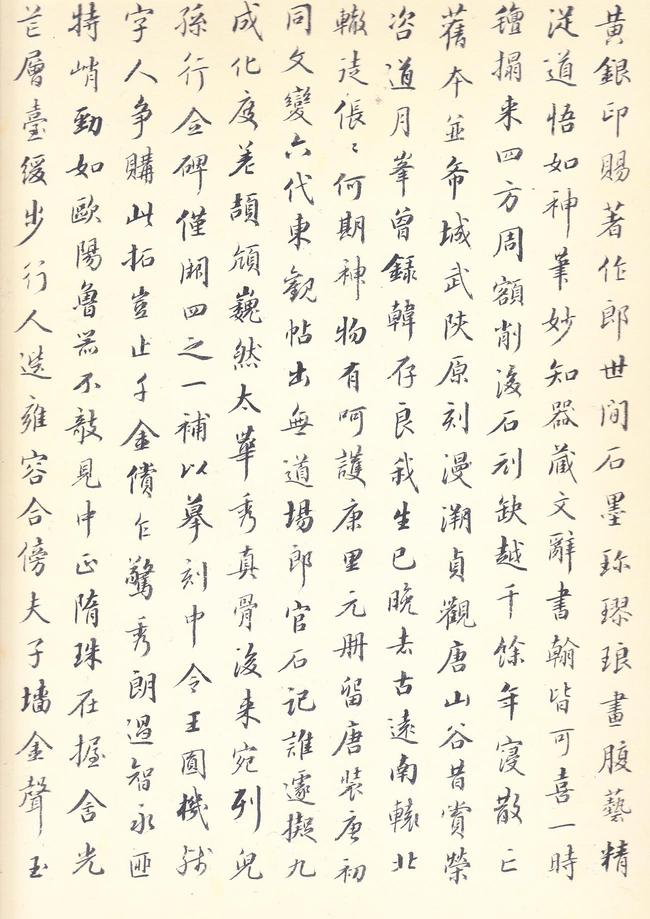 黃銀印賜著作郎世間石墨珎璆琅畫腹藝精
從道悟如神筆妙知器蔵文辭書翰皆可喜一時
氊搨来四方周額削渡石刓缺越千餘年寖散亡
舊本並希城武陝原刻漫溯貞觀唐山谷昔賞榮
咨道月峯曾錄韓存良我生已晩去古遠南轅北
轍徒倀〻何期神物有呵護康里元冊留唐裝唐初
同文變六代東觀帖出無道場郎官石記誰遽擬九
成化度差頡頏巍然太華秀真骨後来宛列兒
孫行合碑僅闕四之一補以摹刻中令王圓機
字人爭購此拓豈止千金償乍驚秀朗過智永
特峭勁如歐陽魯不敲見中正隋珠在握舍光
芒層臺緩步行人逸雍容合傍夫子墻金聲玉